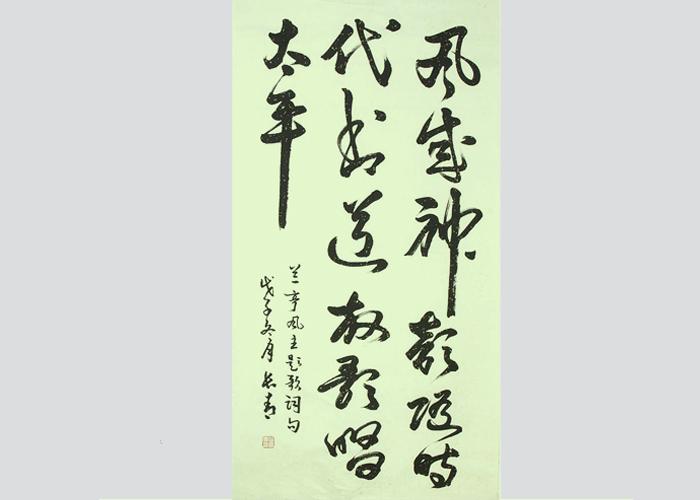 风成神韵随时
代书道放歌唱
太平
兰亭风主题歌词句
戊子冬月长青